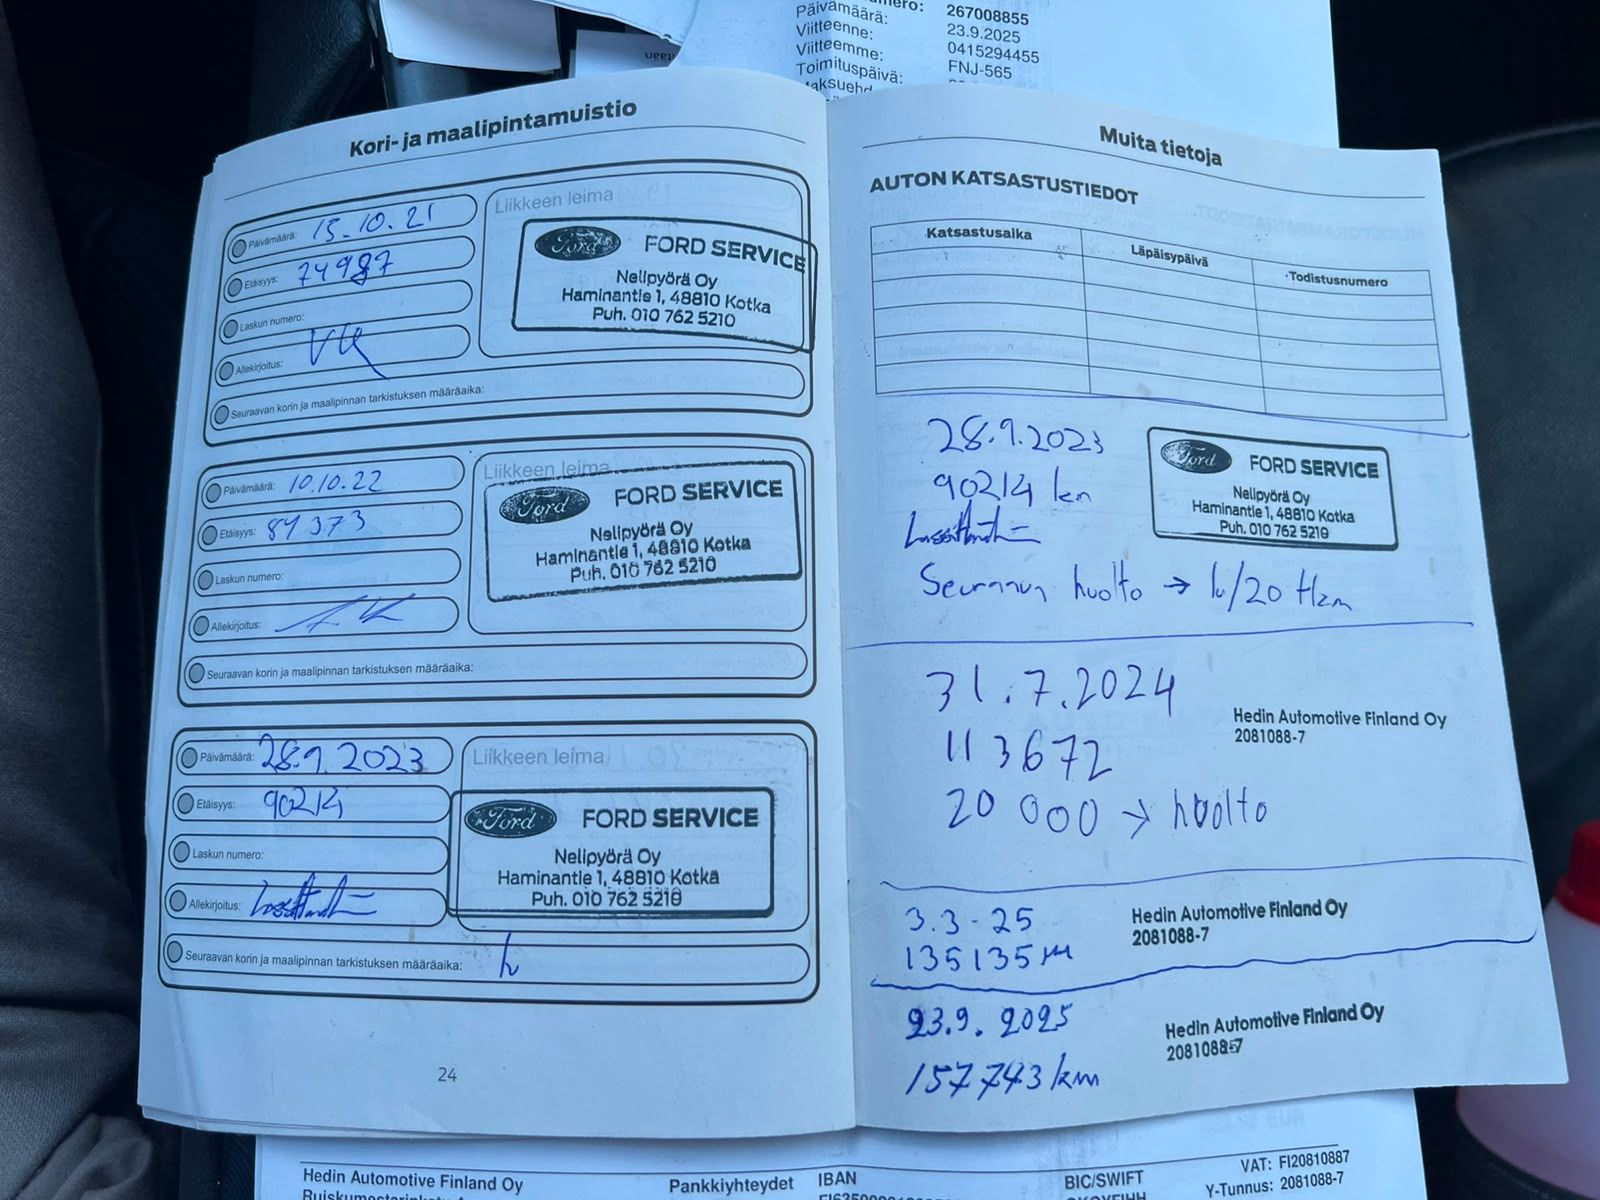 267008855
Päivämäärä: 23.9.2025
Viitteenne: 0415294455
Viitteemme: FNJ-565
Toimituspäivä:
Kori- ja maalipintamuistio
Päivämäärä: 15.10.21
Etäisyys: 74987
Laskun numero:
Allekirjoitus:
Seuraavan korin ja maalipinnan tarkistuksen määräaika:
Liikkeen leima
Ford FORD SERVICE
Nelipyörä Oy
Haminantie 1, 48810 Kotka
Puh. 010 762 5210
Päivämäärä: 10.10.22
Etäisyys: 84373
Laskun numero:
Allekirjoitus:
Seuraavan korin ja maalipinnan tarkistuksen määräaika:
Liikkeen leima
Ford FORD SERVICE
Nelipyörä Oy
Haminantie 1, 48810 Kotka
Puh. 010 762 5210
Päivämäärä: 28.9.2023
Etäisyys: 90214
Laskun numero:
Allekirjoitus:
Seuraavan korin ja maalipinnan tarkistuksen määräaika:
Liikkeen leima
Ford FORD SERVICE
Nelipyörä Oy
Haminantie 1, 48810 Kotka
Puh. 010 762 5210
24
Muita tietoja
AUTON KATSASTUSTIEDOT
Katsastusaika Läpäisypäivä Todistusnumero
28.9.2023
90214 km
Ford FORD SERVICE
Nelipyörä Oy
Haminantie 1, 48810 Kotka
Puh. 010 762 5210
Seuraava huolto → 1v/20 tkm
31.7.2024
113672
20 000 → huolto
Hedin Automotive Finland Oy
2081088-7
3.3-25
135135
Hedin Automotive Finland Oy
2081088-7
23.9.2025
157743 km
Hedin Automotive Finland Oy
2081088-7
Hedin Automotive Finland Oy
Pankkiyhteydet
IBAN
BIC/SWIFT
VAT: FI20810887
Y-Tunnus: 2081088-7